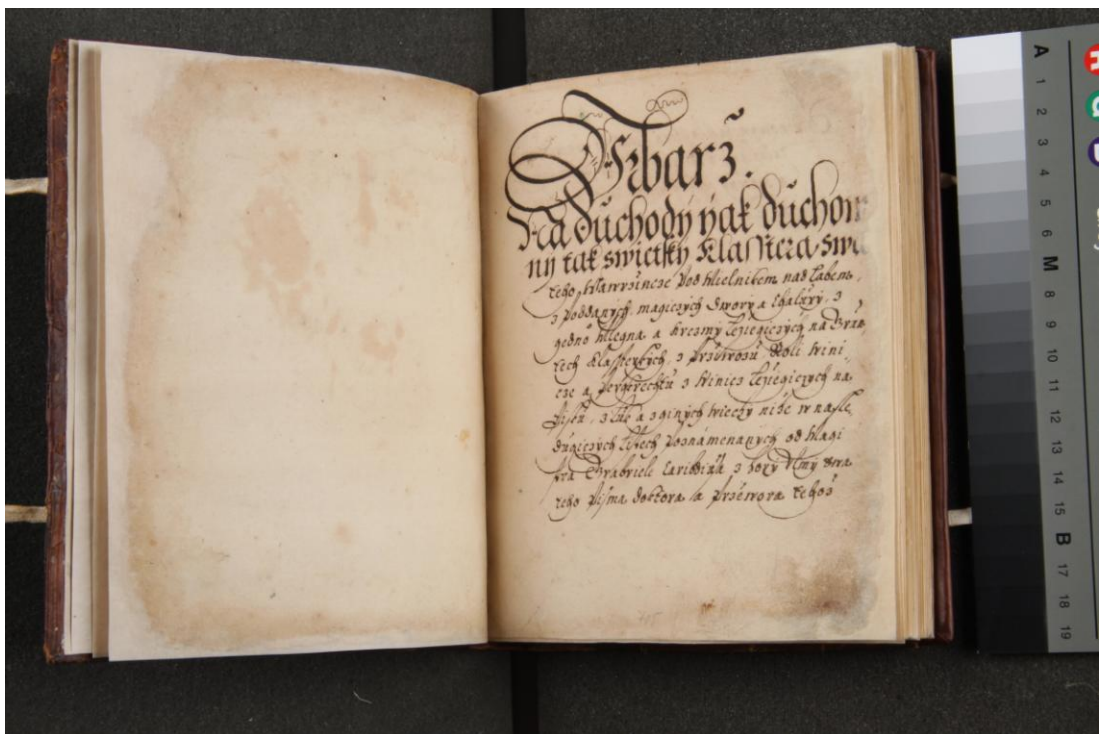 Urbarz.
Na důchody yak důchow
ny tak swietsky Klasstera Swa
teho Wawrzincze pod Mielnikem nad Labem,
z poddanych, magiczych Dwory a Chalupy, z
gednoho Mlegna, a Krczmy ležiegiczych na Grun
tech Klassterskych, z przywozu Roli wini
cze a pergrechtu z Winicz ležiegiczych na
, z luk a z ginych wieczy niže w nasle
dugiczych listech poznamenanych od Magi
stra Gabriele z hory Swa
teho pisma doktora a przewora tehož
A 1 2 3 4 5 6 M 8 9 10 11 12 13 14 15 B 17 18 19